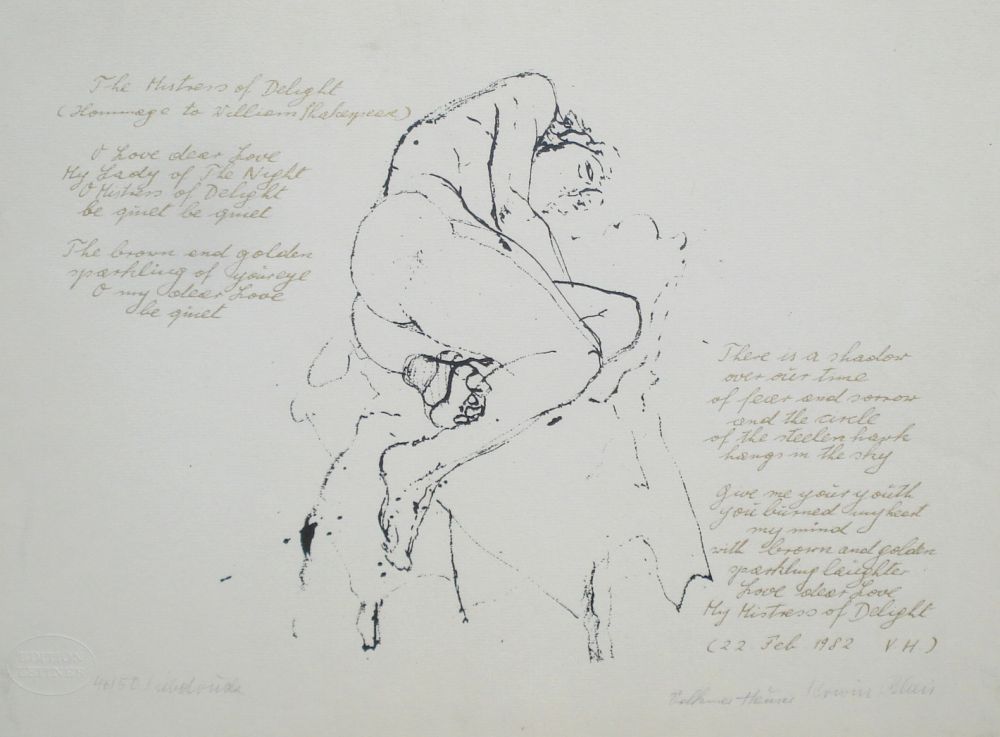 The Mistress of Delight
(Hommage to William Shakespeare)
O Love dear Love
My Lady of The Night
O Mistress of Delight
be quiet be quiet
The brown and golden
sparkling of your eye
O my dear Love
be quiet
There is a shadow
over our time
of fear and sorrow
and the circle
of the steelen hawk
hangs in the sky
Give me your youth
you burned my heart
my mind
with brown and golden
sparkling laughter
Love dear Love
My Mistress of Delight
(22. Feb. 1982 V H.)
EDITION